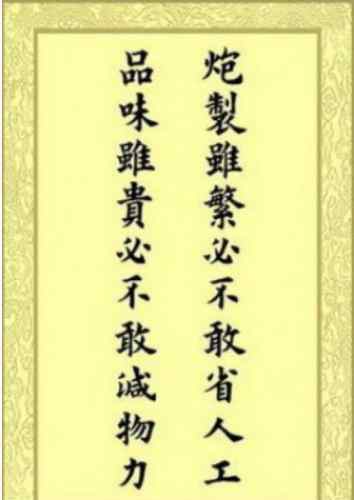 炮製雖繁必不敢省人工
品味雖貴必不敢減物力